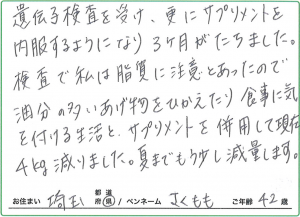 遺伝子検査を受け、更にサプリメントを
内服するようになり3ヶ月がたちました。
検査で私は脂質に注意とあったので
油分の多いあげ物をひかえたり食事に気
を付ける生活と、サプリメントを併用して現在
4kg減りました。夏までもう少し減量します。
お住まい 埼玉 都道府県 / ペンネーム さくもも ご年齢 42歳